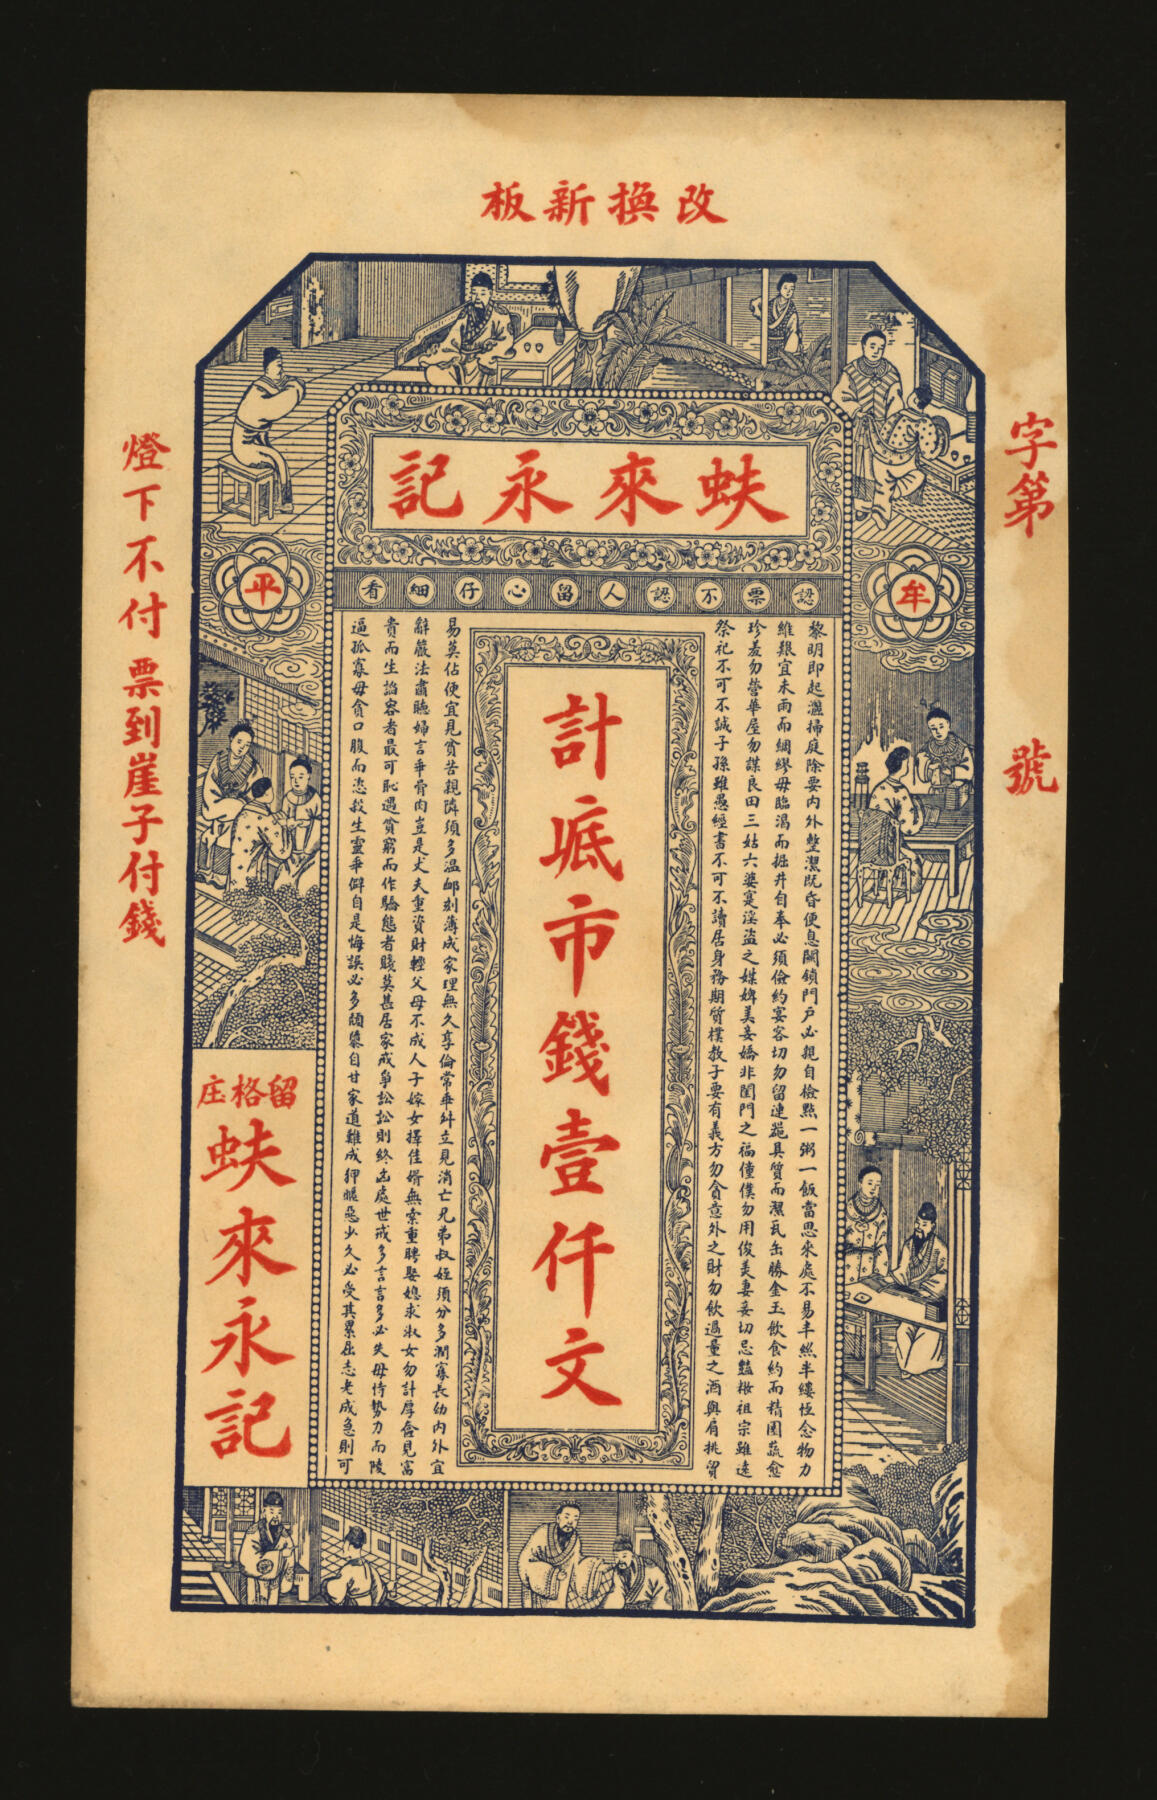 改換新板
字第 號
蚨來永記
牟平
認票不認人留心仔細看
黎明即起灑掃庭除要內外整潔既昏便息關鎖門戶必親自檢點一粥一飯當思來處不易半絲半縷恆念物力
維艱宜未雨而綢繆毋臨渴而掘井自奉必須儉約宴客切勿留連器具質而潔瓦缶勝金玉飲食約而精園蔬愈
珍羞勿營華屋勿謀良田三姑六婆寔淫盜之媒婢美妾嬌非閨門之福僮僕勿用俊美妻妾切忌豔妝祖宗雖遠
祭祀不可不誠子孫雖愚經書不可不讀居身務期質樸教子要有義方勿貪意外之財勿飲過量之酒與肩挑貿
計底市錢壹仟文
易莫佔便宜見貧苦親隣須多温卹刻薄成家理無久享倫常乖舛立見消亡兄弟叔姪須分多潤寡長幼內外宜
辭嚴法肅聽婦言乖骨肉豈是丈夫重資財輕父母不成人子嫁女擇佳婿無索重聘娶媳求淑女勿計厚奩見富
貴而生諂容者最可恥遇貧窮而作驕態者賤莫甚居家戒爭訟訟則終凶處世戒多言言多必失毋恃勢力而陵
逼孤寡毋貪口腹而恣殺生靈乖僻自是悔誤必多頹隳自甘家道難成狎暱惡少久必受其累屈志老成急則可
留格庄
蚨來永記
燈下不付 票到崖子付錢